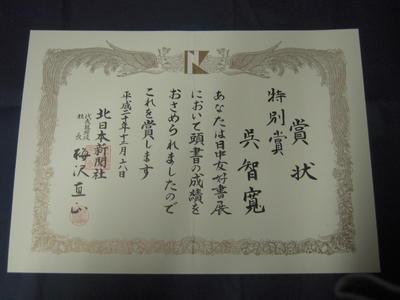 賞状
特別賞
呉智寛
あなたは日中友好書展
において頭書の成績を
おさめられましたので
これを賞します
平成二十年十二月六日
北日本新聞社
代表取締役
社長
梅沢直正